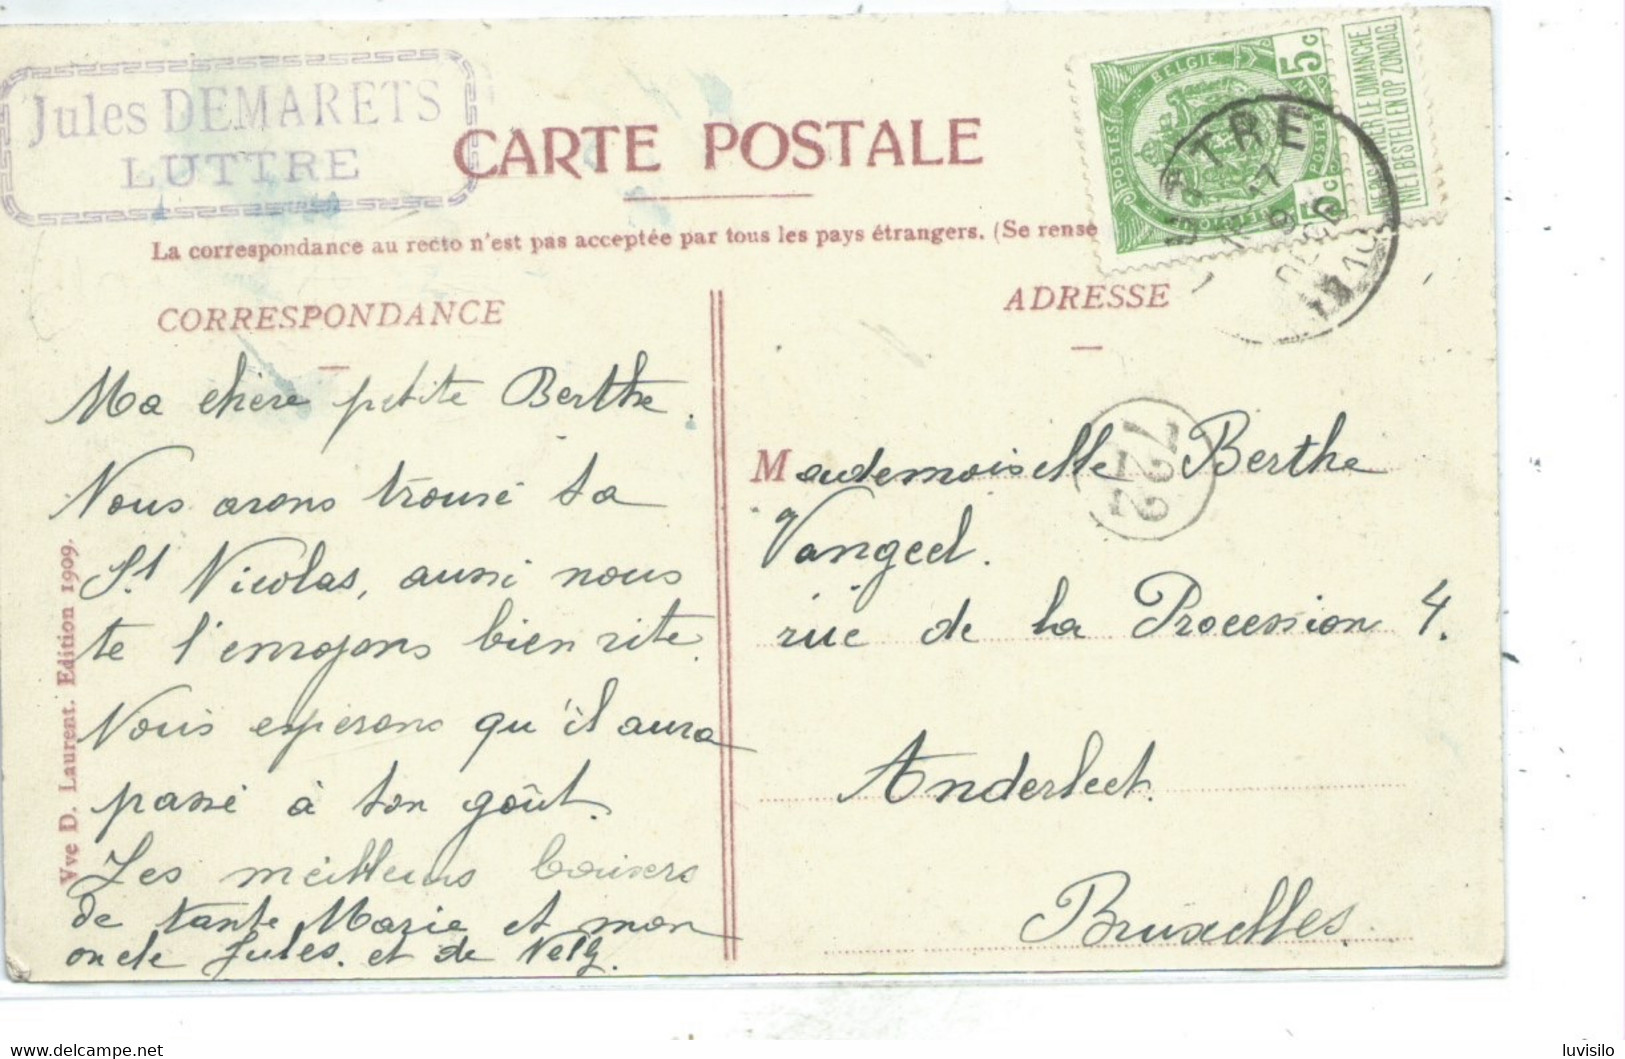 Jules DEMARETS
LUTTRE
CARTE POSTALE
La correspondance au recto n'est pas acceptée par tous les pays étrangers. (Se rense
BELGIE
POSTES
POSTERIJ
BELGIQUE
5c
5c
NE PAS LIVRER LE DIMANCHE
NIET BESTELLEN OP ZONDAG
LUTTRE
CORRESPONDANCE
ADRESSE
Ma chère petite Berthe.
Nous avons trouvé ta
St Nicolas, aussi nous
te l'envoyons bien vite.
Nous espérons qu'il aura
passé à ton goût.
Les meilleurs baisers
de tante Marie et mon
oncle Jules. et de Nelly.
722
Mademoiselle Berthe
Vangeel.
rue de la Procession 4.
Anderlecht.
Bruxelles.
Vve D. Laurent. Edition 1909.
luvisilo